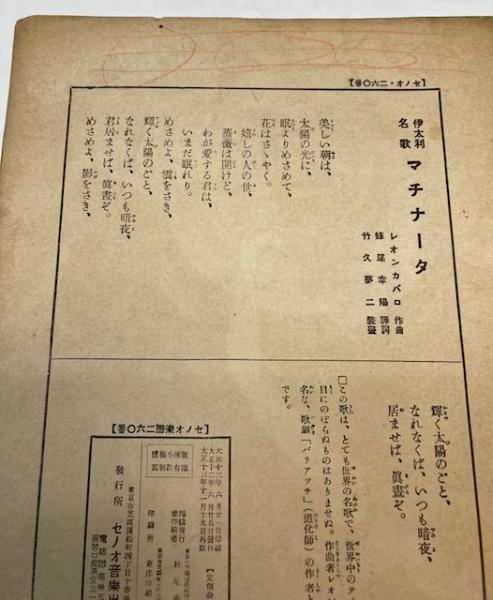 【セノオ・二六〇番】
伊太利
名歌
マチナータ
レオンカバロ 作曲
妹尾幸陽 譯詞
竹久夢二 裝畫
美しい朝は、
太陽の光に、
眠よりめさめて、
花はさゝやく。
嬉しの人の世、
薔薇は開けど、
わが愛する君は、
いまだ眠れり。
めさめよ、雲をさき、
輝く太陽のごと、
なれなくば、いつも暗夜、
君居ませば、眞晝ぞ。
めさめよ、影をさき、
輝く太陽のごと、
なれなくば、いつも暗夜、
居ませば、眞晝ぞ。
□この歌は、とても世界の名歌で、世界中のテ
目にのぼらぬものはありませぬ。作曲者レオン
名な、歌劇「パリアツチ」(道化師)の作者と
です。
【セノオ樂譜二六〇番】
大正十二年六月廿一日印刷
大正十二年六月廿五日發行
大正十三年十二月十九日再版
【定價金
印刷者
印刷所 東洋印刷
東京市芝區濱松町四丁目十番
發行所 セノオ音樂出